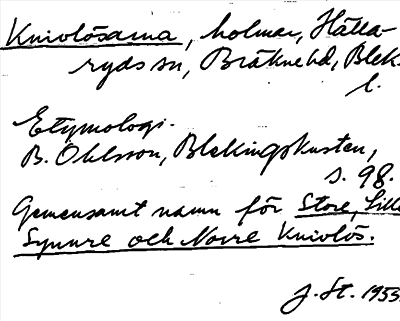 Knivlösarna, holmar, Hälla-
ryds sn, Bräkne hd, Blek.
l.
Etymologi.
B. Ohlsson, Blekingskusten,
s. 98.
Gemensamt namn för Store, Lille
Synnre och Norre Knivlös.
J. St. 1953